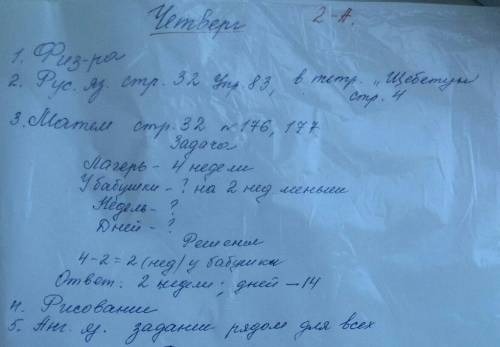 Четверг 2-А.
1. Физ-ра
2. Рус. яз. стр. 32 Упр. 83, в тетр. „Щебетуш
стр. 4
3. Матем стр. 32 № 176, 177
Задача
Лагерь - 4 недели
У бабушки - ? на 2 нед меньш
Недель - ?
Дней - ?
Решения
4-2=2 (нед) у бабушки
Ответ: 2 недели; дней - 14
4. Рисовании
5. Анг. яз. задании рядом для всех